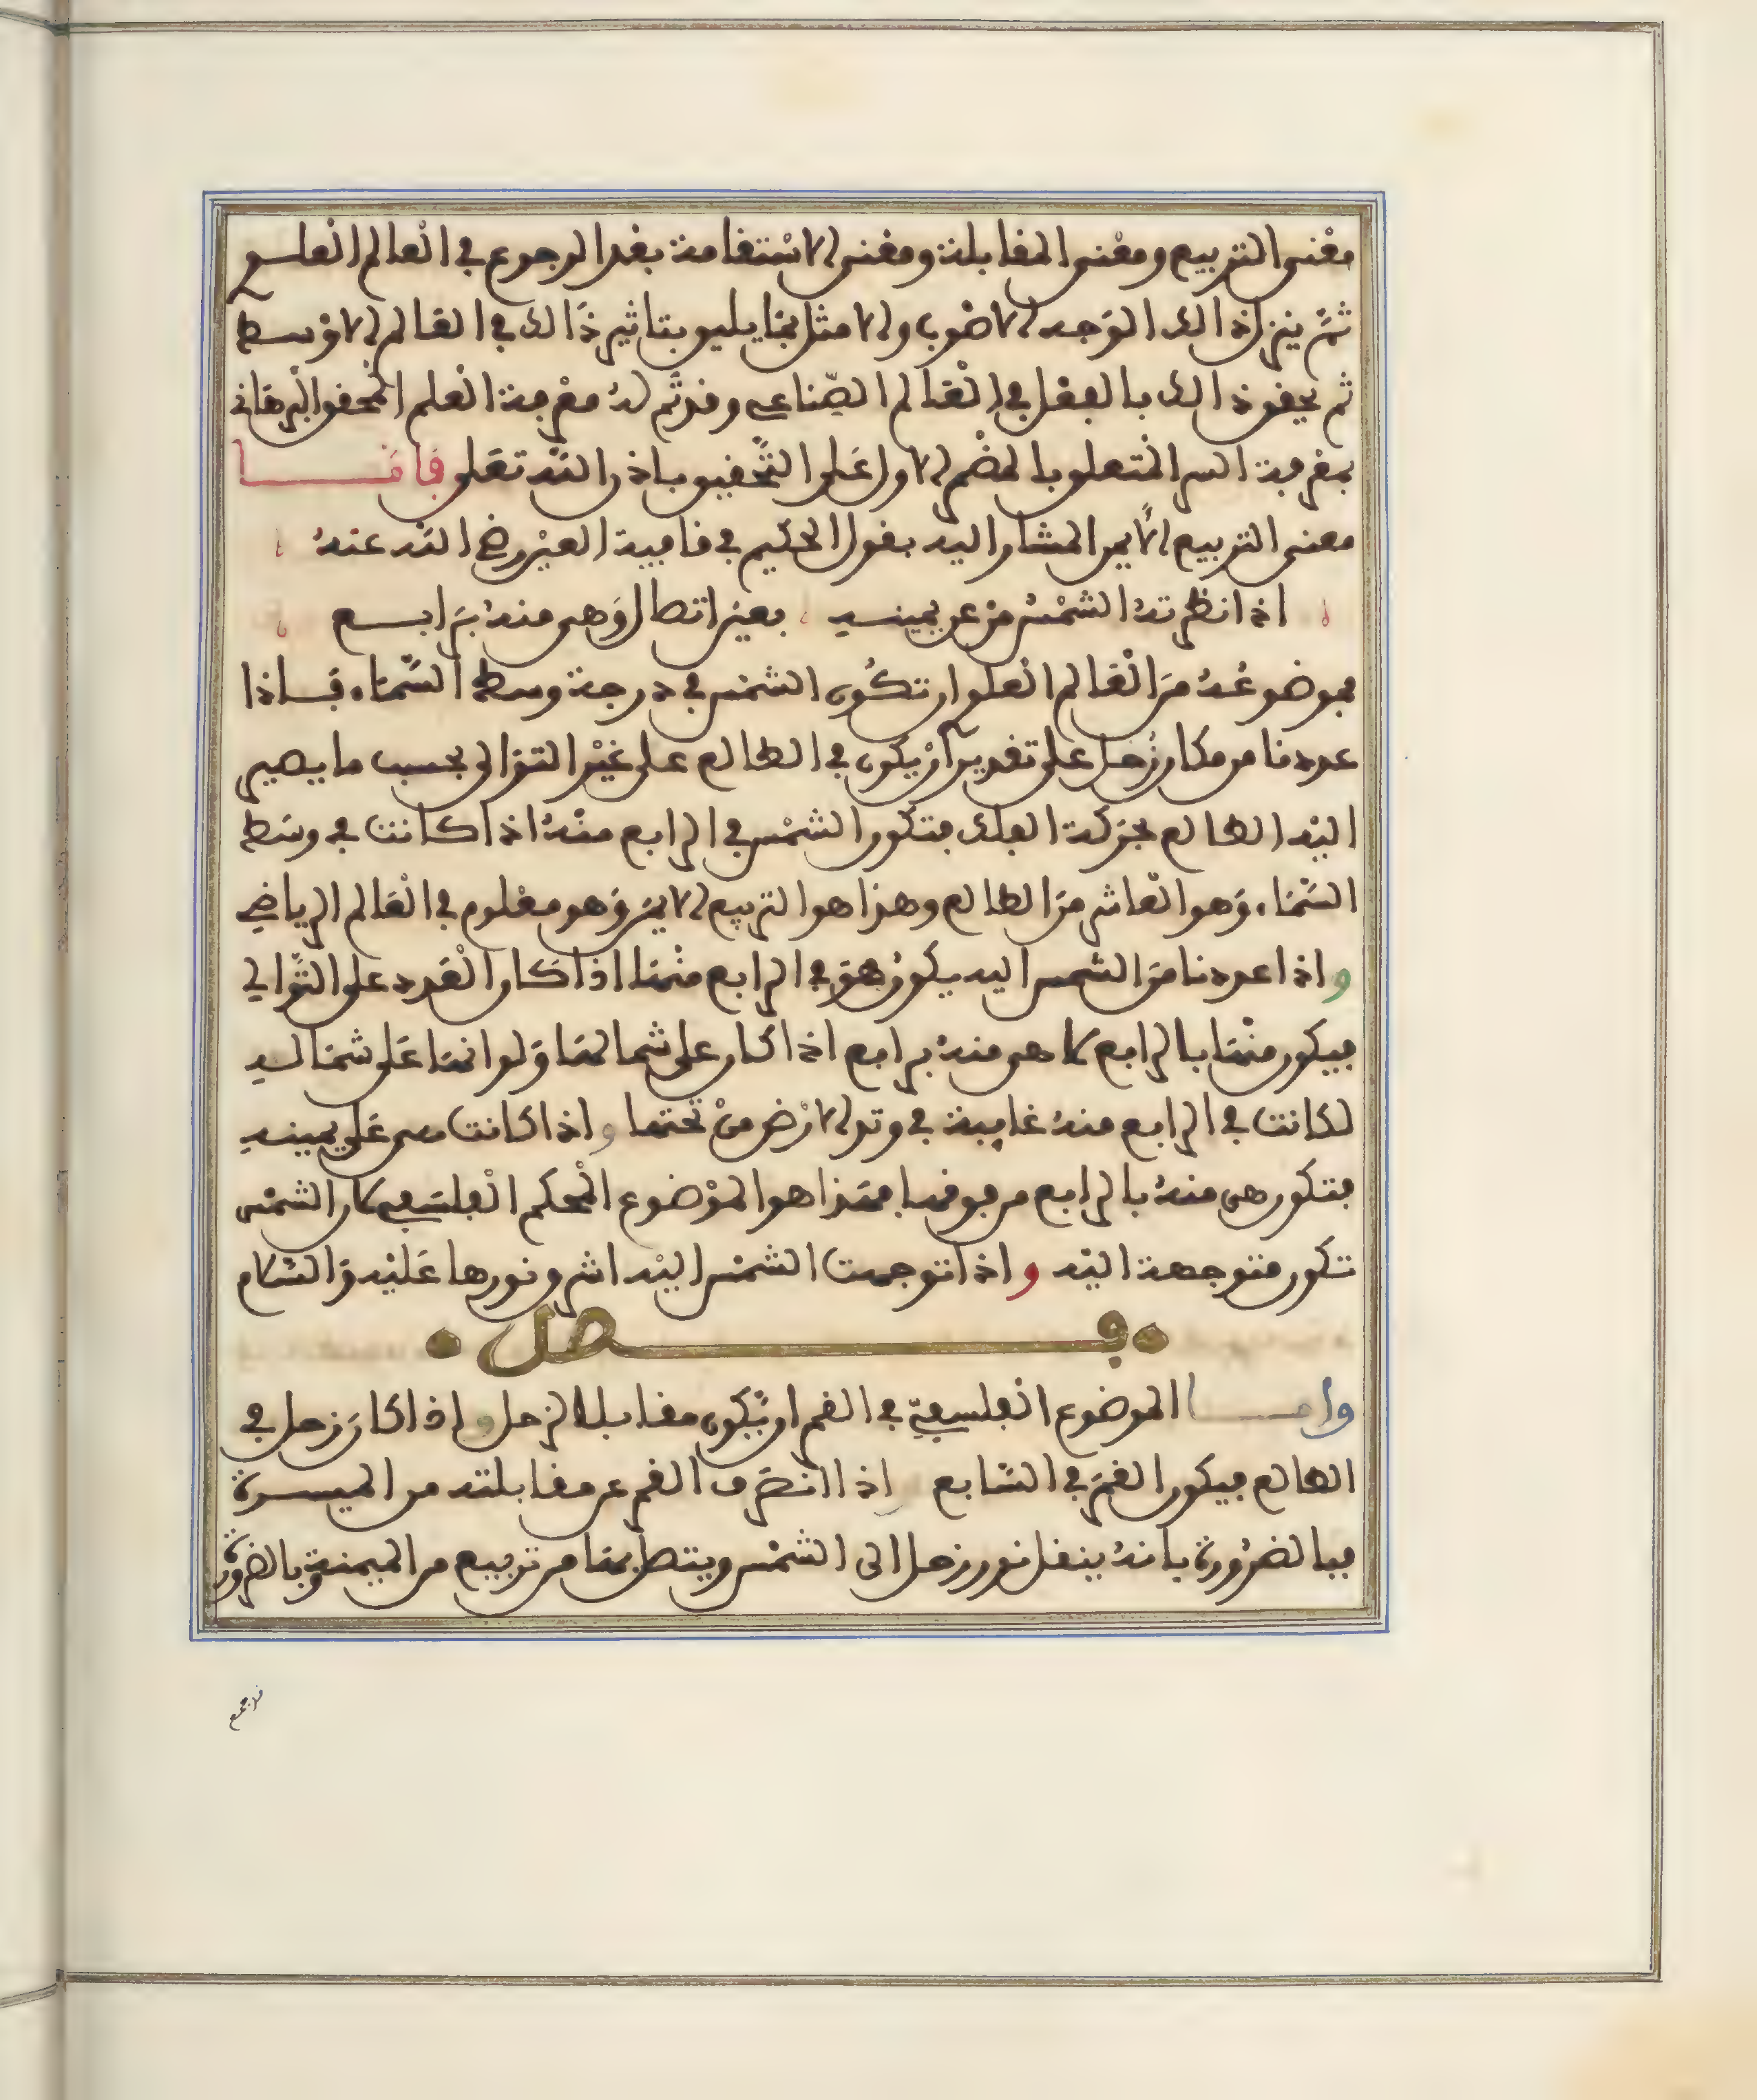 معنى التربيع ومعنى المقابلة ومعنى الاستقامة بعد الرجوع في العالم العلوي
ثمّ ينزل ذالك الوجه الاصوب والامثل بما يليق بتاثير ذالك في العالم الاوسط
ثم يحقق ذالك بالفعل في العالم الصّناعي وقد تّم له معرفة العلم المحقق البرهاني
بمعرفة السر المتعلق بالمضمر الاول على التّحقيق باذن اللّه تعلى فامّا
معنى التربيع الايمن المشار اليه بقول الحكيم في قافية العين رضي اللّه عنه
اذا نظرته الشمس من عن يمينه بغير اتصال وهي منه برابع
فموضوعه من العالم العلوي ان تكون الشمس في درجة وسط السّماء فاذا
عددنا من مكان زحل على تقدير ان يكون في الطالع على غير التوالي بحسب ما يصير
اليه الطالع بحركة الفلك فتكون الشمس في الرابع منه اذا كانت في وسط
السّماء وهو العاشر من الطالع وهذا هو التربيع الايمن وهو معلوم في العالم الرياضي
واذا عددنا من الشمس اليه يكون هو في الرابع منها اذا كان العدد على التّوالي
فيكون منها بالرابع كما هي منه برابع اذا كان على شمالها ولو انها على شماله
لكانت في الرابع منه غايبة في وتد الارض من تحتها واذا كانت هي على يمينه
فتكون هي منه بالرابع من فوقها فهذا هو الموضوع المحكم الفلسفي كان الشمس
تكون متوجهة اليه واذا توجهت الشمس اليه اشرق نورها عليه والسّلام
فصل
وامّا الموضوع الفلسفيّ في القمر ان يّكون مقابلا لزحل واذا كان زحل في
الطالع فيكون القمر في السّابع اذا انصرف القمر عن مقابلته من الميسرة
فبالضرورة بانه ينقل نور زحل الى الشمس ويتصل بها من تربيع من الميمنة وبالضرورة